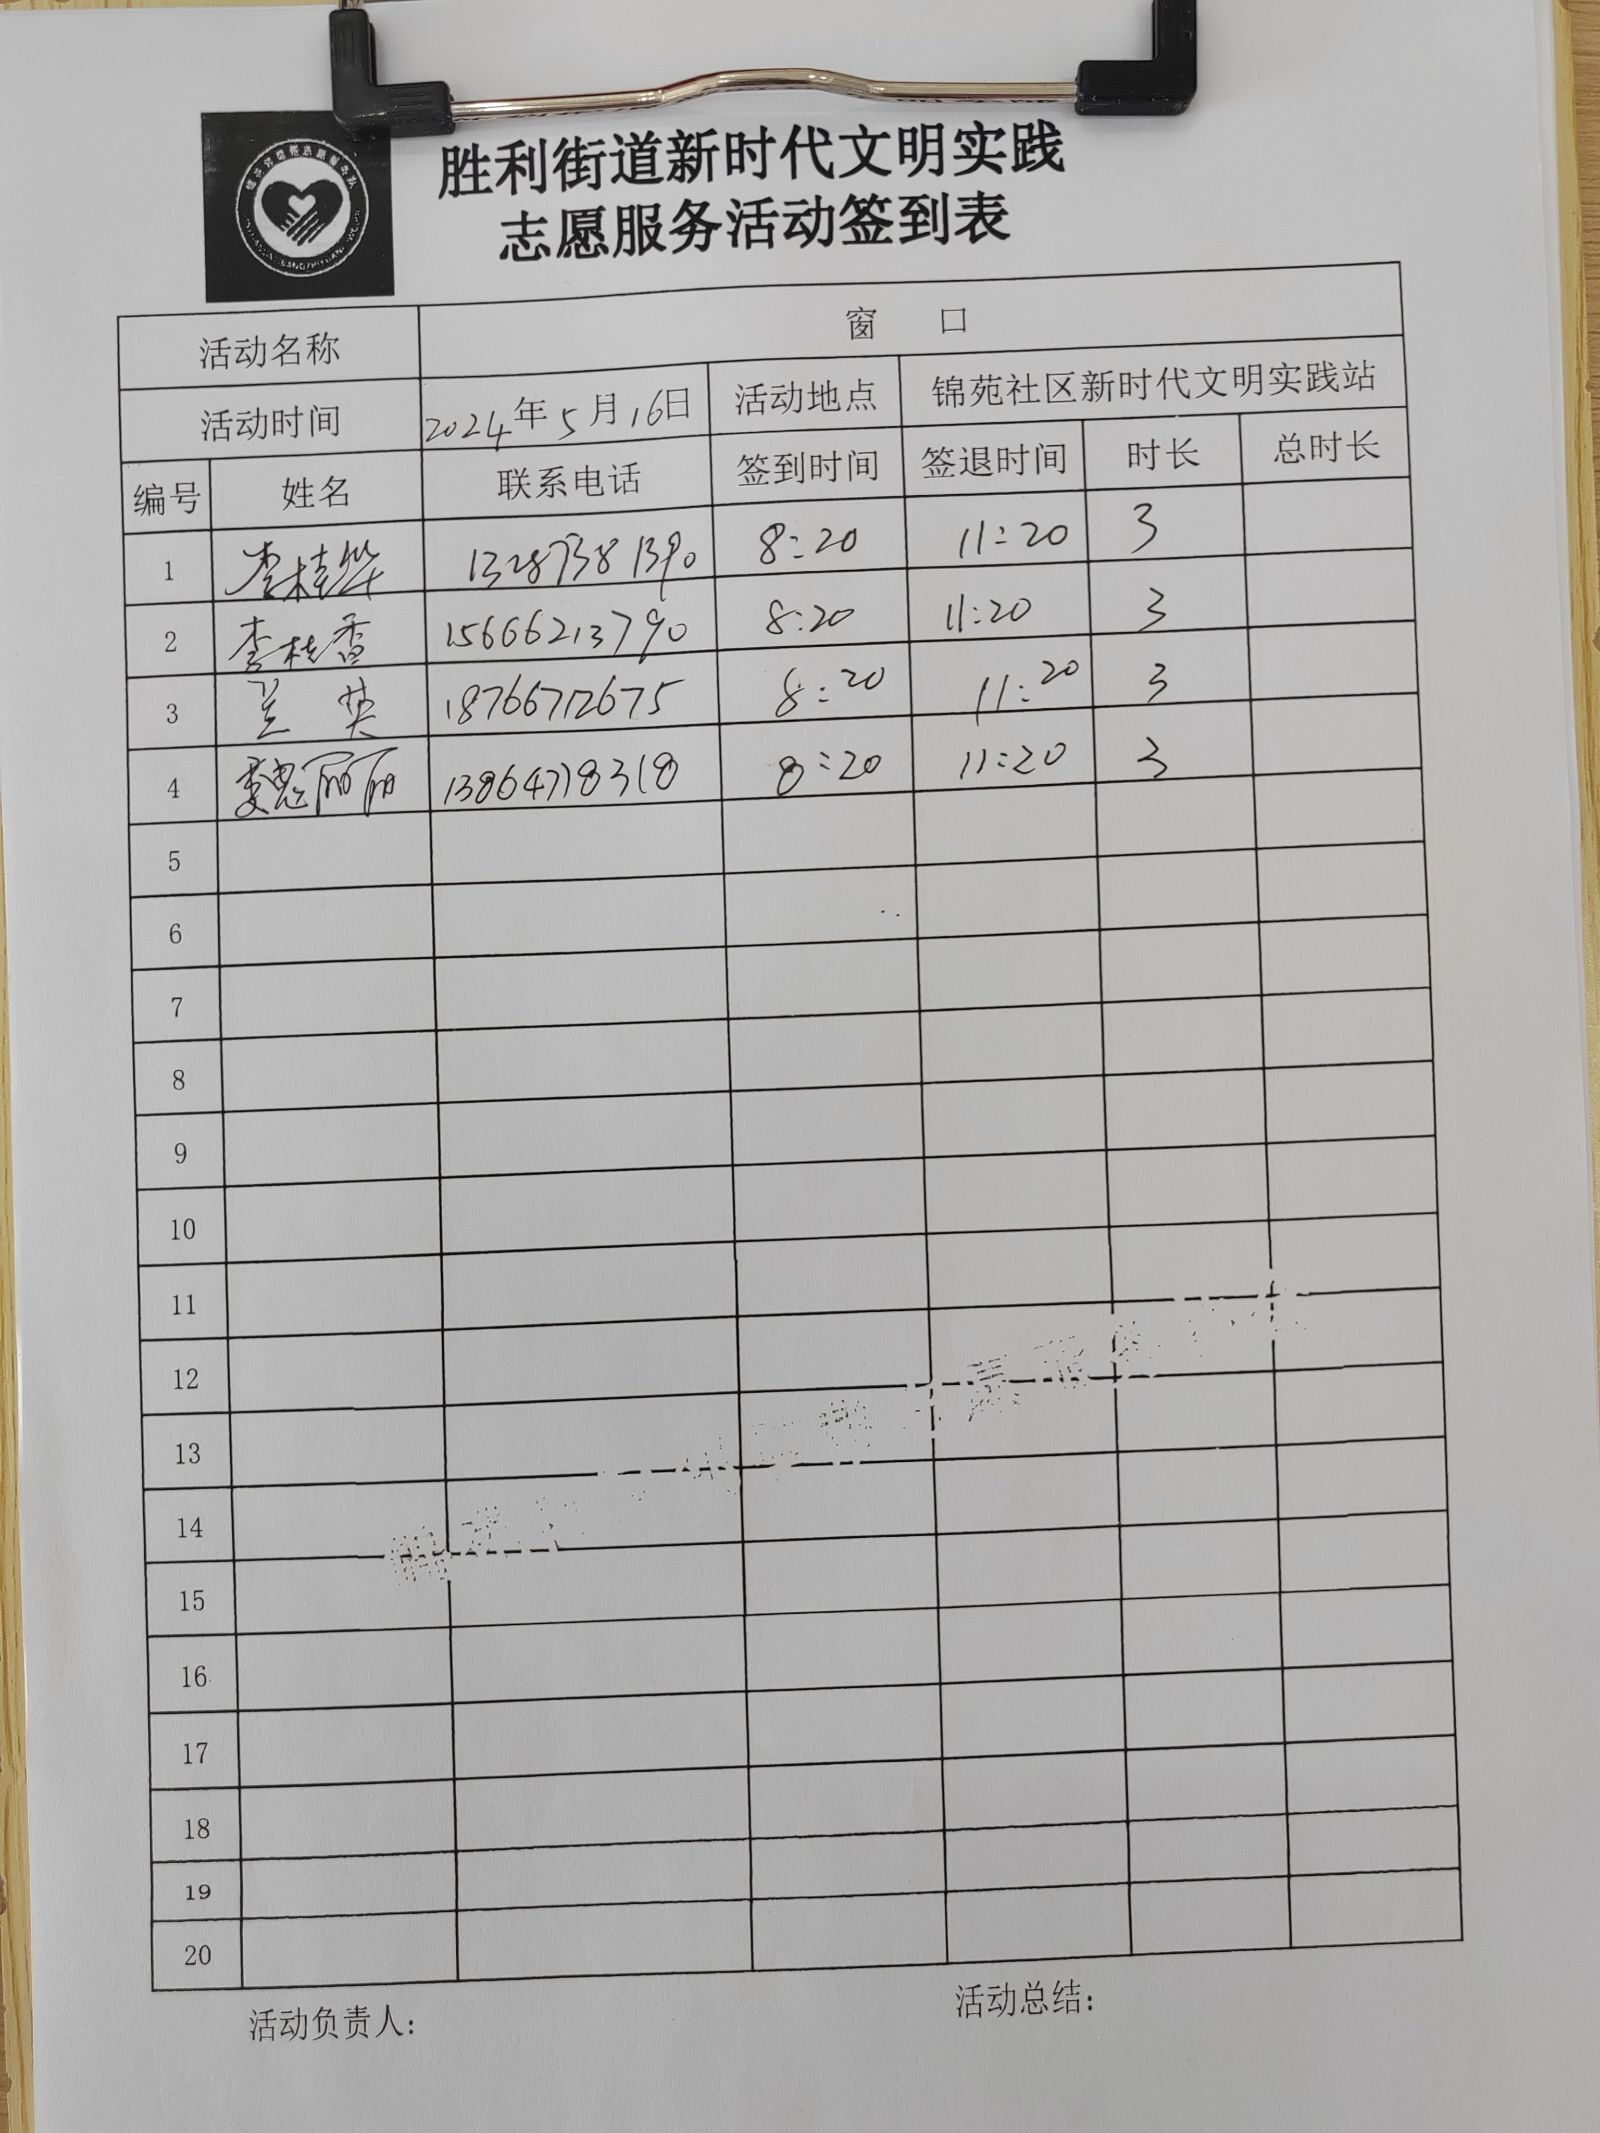 胜利街道新时代文明实践
志愿服务活动签到表
活动名称 窗 口
活动时间 2024年5月16日 活动地点 锦苑社区新时代文明实践站
编号 姓名 联系电话 签到时间 签退时间 时长 总时长
1 李桂华 13287381390 8:20 11:20 3
2 李桂香 15666213790 8:20 11:20 3
3 兰英 18766712675 8:20 11:20 3
4 魏丽丽 13864718318 8:20 11:20 3
5
6
7
8
9
10
11
12
13
14
15
16
17
18
19
20
活动负责人: 活动总结: